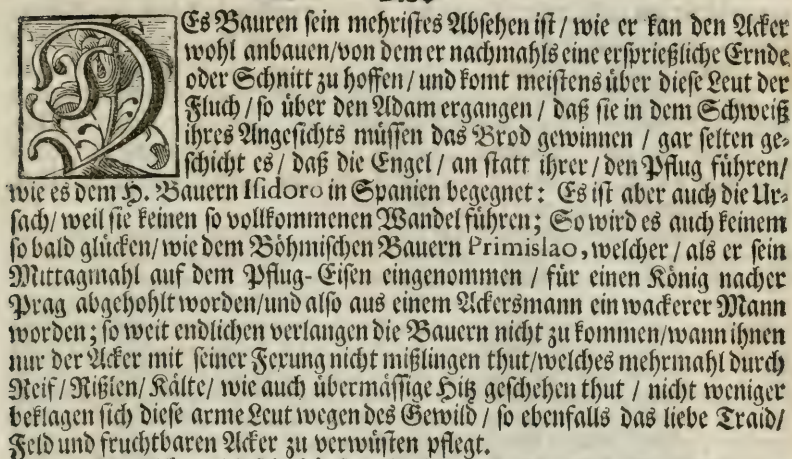 DEs Bauren sein mehristes Absehen ist / wie er kan den Acker
wohl anbauen/von dem er nachmahls eine ersprießliche Ernde
oder Schnitt zu hoffen / und komt meistens über diese Leut der
Fluch / so über den Adam ergangen / daß sie in dem Schweiß
ihres Angesichts müssen das Brod gewinnen / gar selten ge-
schicht es / daß die Engel / an statt ihrer / den Pflug führen/
wie es dem H. Bauern Isidoro in Spanien begegnet: Es ist aber auch die Ur-
sach/ weil sie keinen so vollkommenen Wandel führen; So wird es auch keinem
so bald glücken/wie dem Böhmischen Bauern Primislao, welcher / als er sein
Mittagmahl auf dem Pflug-Eisen eingenommen / für einen König nacher
Prag abgehohlt worden/und also aus einem Ackersmann ein wackerer Mann
worden; so weit endlichen verlangen die Bauern nicht zu kommen/wann ihnen
nur der Acker mit seiner Fexung nicht mißlingen thut/welches mehrmahl durch
Reif / Rißlen / Kälte / wie auch übermässige Hitz geschehen thut / nicht weniger
beklagen sich diese arme Leut wegen des Gewild / so ebenfalls das liebe Traid/
Feld und fruchtbaren Acker zu verwüsten pflegt.